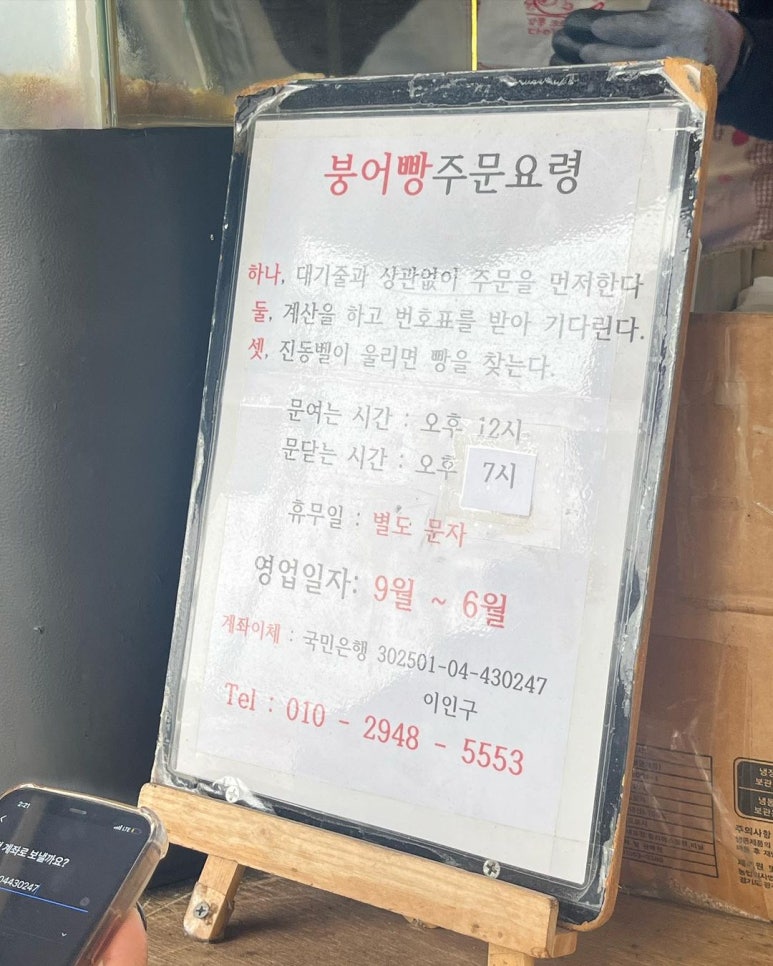 붕어빵주문요령
하나, 대기줄과 상관없이 주문을 먼저한다
둘, 계산을 하고 번호표를 받아 기다린다.
셋, 진동벨이 울리면 빵을 찾는다.
문여는 시간 : 오후 12시
문닫는 시간 : 오후 7시
휴무일 : 별도 문자
영업일자: 9월 ~ 6월
계좌이체 : 국민은행 302501-04-430247
이인구
Tel : 010 - 2948 - 5553
2:21
LTE
계좌로 보낼까요?
04430247
냉장
보관
냉동
보관
주의사항